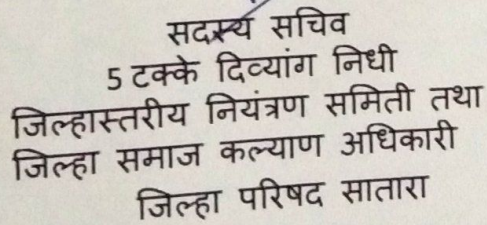 सदस्य सचिव
5 टक्के दिव्यांग निधी
जिल्हास्तरीय नियंत्रण समिती तथा
जिल्हा समाज कल्याण अधिकारी
जिल्हा परिषद सातारा